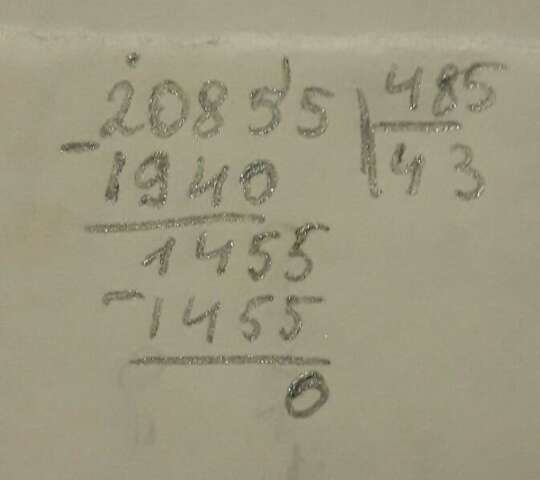 20855 485
-1940 43
1455
-1455
0